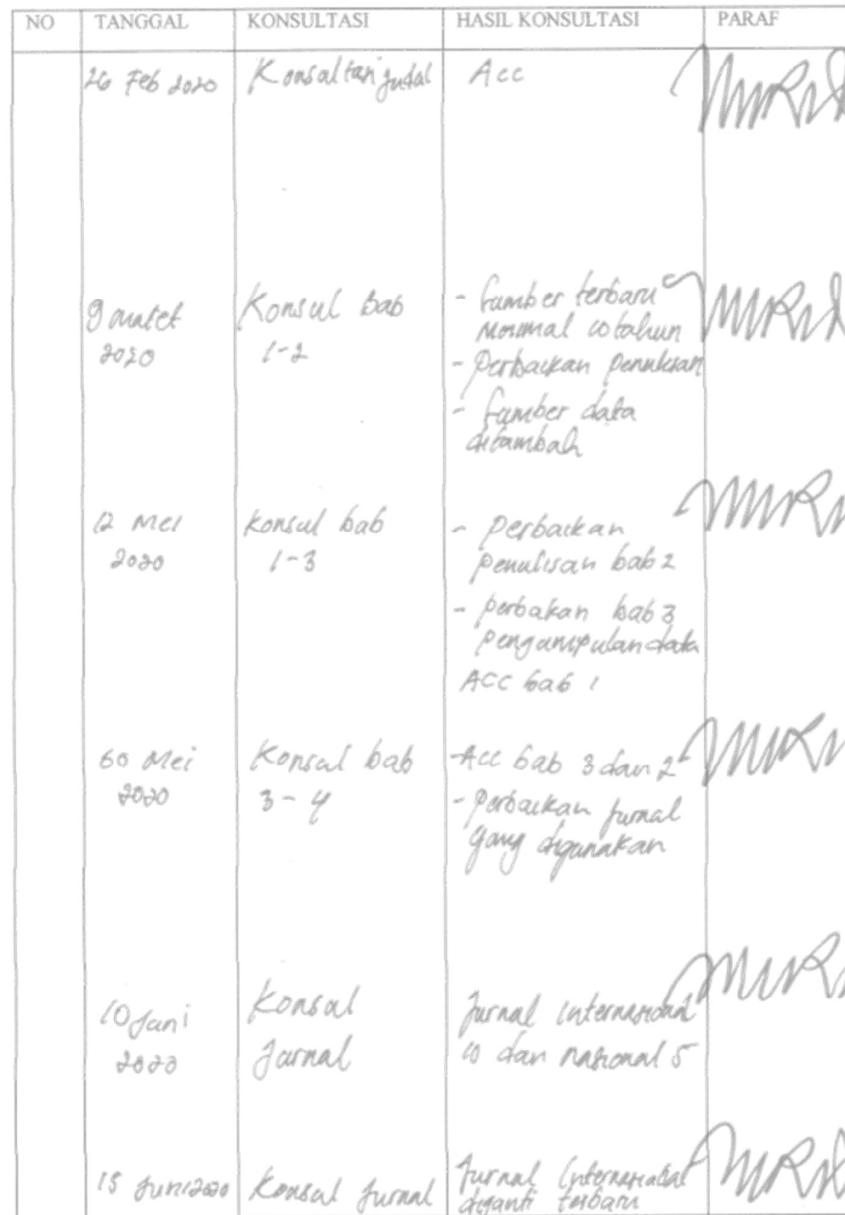 NO TANGGAL KONSULTASI HASIL KONSULTASI PARAF
26 Feb 2020 Konsultasi judul Acc
9 maret Konsul bab - Sumber terbaru
2020 1-2 minimal 10 tahun
- Perbaikan penulisan
- Sumber data
ditambah
12 Mei Konsul bab - Perbaikan
2020 1-3 penulisan bab 2
- perbakan bab 3
pengumpulan data
ACC bab 1
Mei Konsul bab -Acc bab 3 dan 2
2020 3-4 - Perbaikan jurnal
yang digunakan
10 Juni Konsul Jurnal internasional
2020 Jurnal 10 dan nasional 5
15 Juni 2020 Konsul Jurnal Jurnal Internasional
diganti terbaru